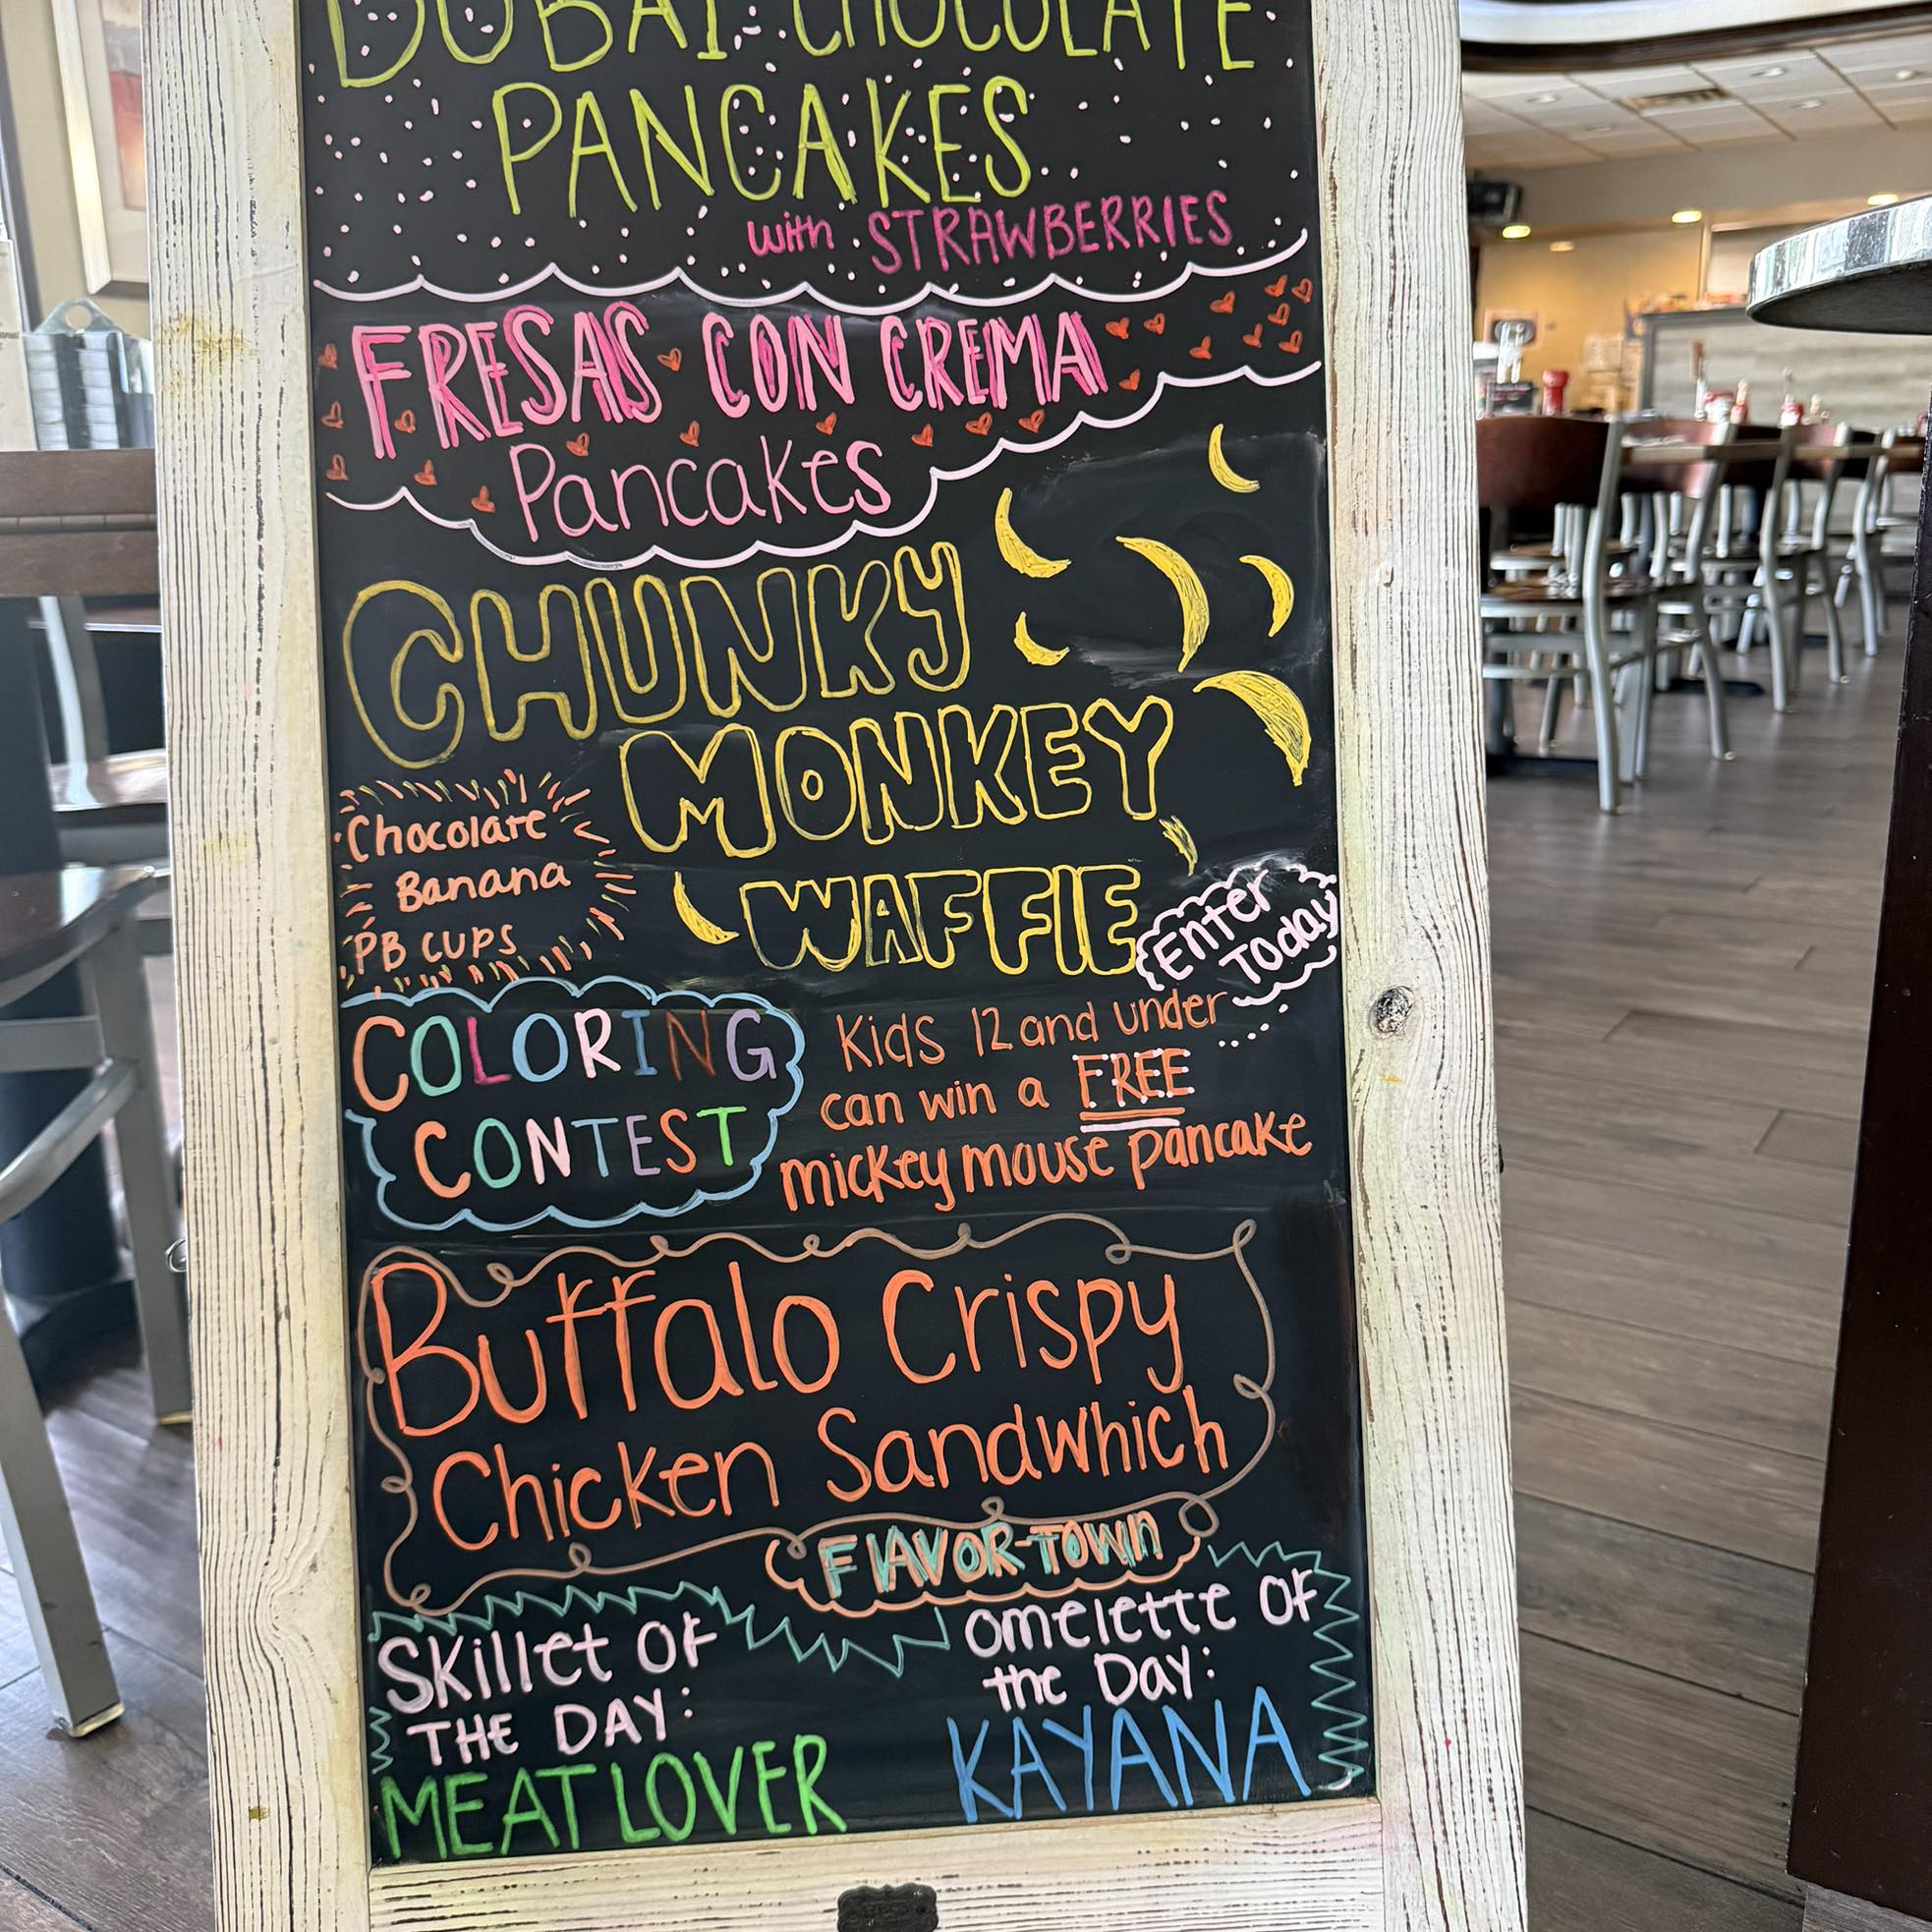 DUBAI CHOCOLATE
PANCAKES
with STRAWBERRIES
FRESAS CON CREMA
Pancakes
CHUNKY
MONKEY
WAFFlE
Chocolate
Banana
PB CUPS
Enter
Today
COLORING
CONTEST
Kids 12 and under
can win a FREE
mickey mouse pancake
Buffalo Crispy
Chicken Sandwhich
FlAVOR-TOWN
Skillet OF
THE DAY:
MEAT LOVER
omelette OF
the Day:
KAYANA